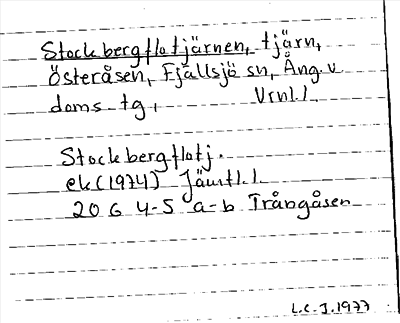 Stockbergflotjärnen, tjärn,
Österåsen, Fjällsjö sn, Ång. v
doms tg, Vrnl.l.
Stockbergflotj.
ek (1974) Jämtl.l.
20 G 4-5 a-b Trångåsen
L.C.J. 1977